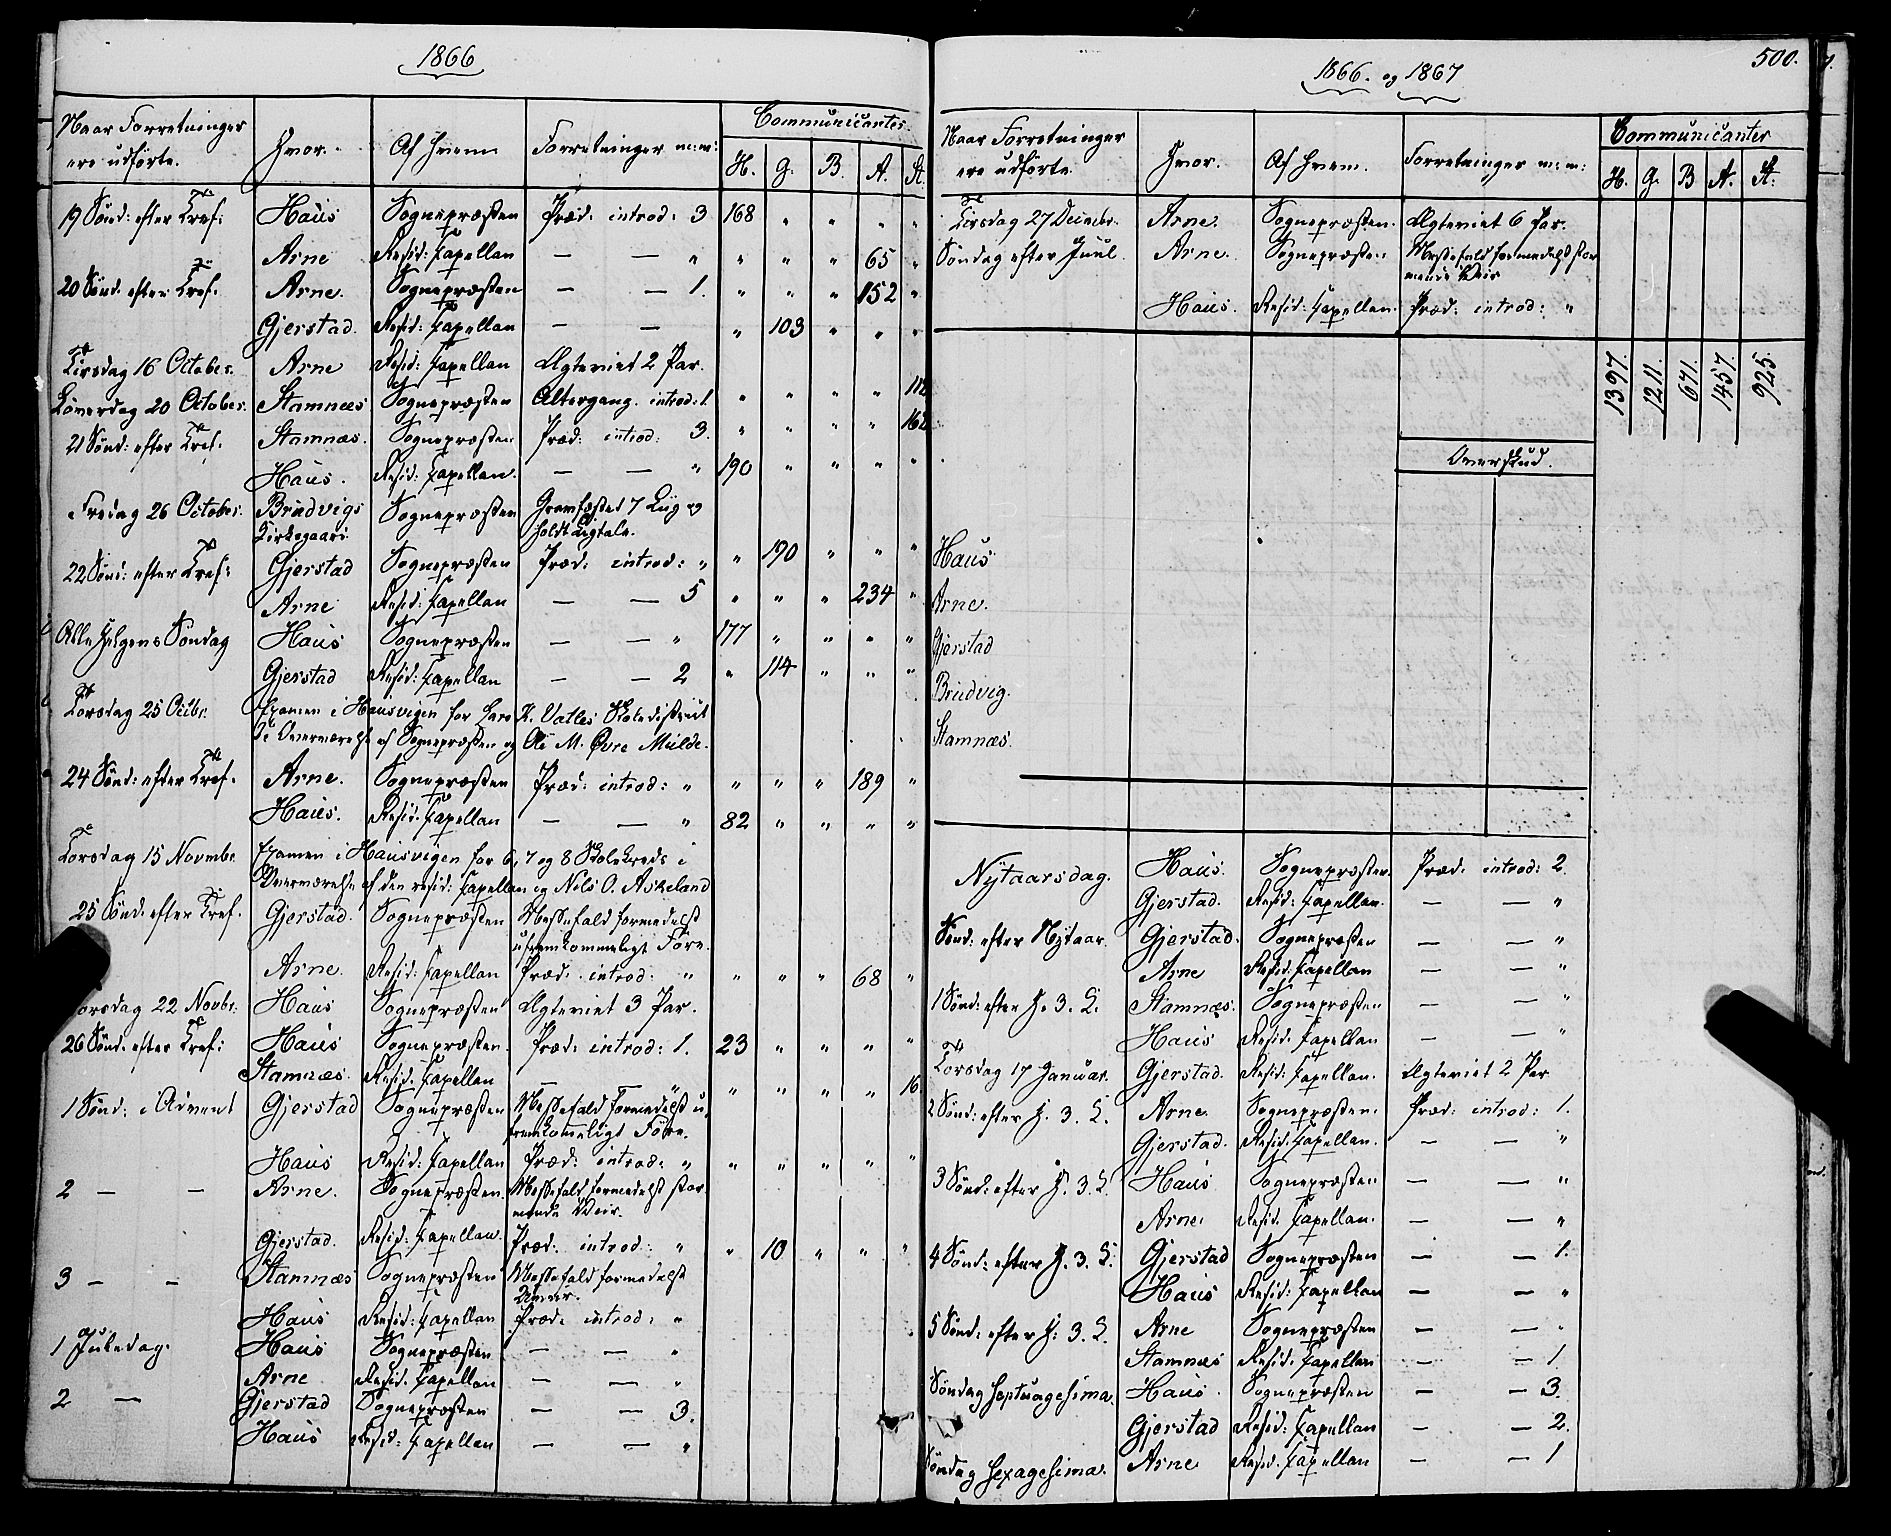 1866
Naar Forretninger ere udførte. Hvor. Af hvem Forretninger m:m: Communicanter
H. G. B. A. St.
19 Sønd: efter Tref: Haus Sognepræsten Præd: introd: 3 168 " " " "
Arne Resid: Capellan — — " " " " 65 "
20 Sønd: efter Tref. Arne. Sognepræsten — — 1. " " " 152 "
Gjerstad. Resid: Capellan — — " 103 " " "
Tirsdag 16 October. Arne Resid: Capellan Ægteviet 2 Par.
Løverdag 20 October. Stamnæs Sognepræsten Altergang. introd: 1. " " " "
21 Sønd: efter Tref. Stamnæs. Sognepræsten Præd: introd: 3. " " " "
Haus. Resid: Capellan. — — " 190 " " " "
Fredag 26 October. Brudvigs Sognepræsten Gravfæstet 7 Liig og
Kirkegaard. holdt Ligtale.
22 Sønd: efter Tref: Gjerstad Sognepræsten Præd: introd: " " 190 " " "
Arne Resid: Capellan — — 5 " " " 234 "
Alle Helgens Søndag Haus Sognepræsten — — " 177 " " " "
Gjerstad Resid: Capellan — — 2 " 114 " " "
Torsdag 25 Octbr. Examen i Hausvigen for Lars K. Vatles Skoledistrict
i Overværelse af Sognepræsten og Ole M. Øvre Mulde.
24 Sønd: efter Tref. Arne. Sognepræsten Præd: introd: " " " " 189 "
Haus. Resid. Capellan — — " 82 " " " "
Torsdag 15 Novmbr. Examen i Hausvigen for 6, 7 og 8 Skolekreds i
Overværelse af den resid: Capellan og Nils O. Askeland
25 Sønd. efter Tref. Gjerstad. Sognepræsten Messefald formedelst
ufremkommeligt Føre.
Arne. Resid. Capellan Præd: introd: " " " " 68 "
Torsdag 22 Novbr: Haus Sognepræsten Ægteviet 3 Par.
26 Sønd. efter Tref: Haus Sognepræsten. Præd: introd: 1. 23 " " " "
Stamnæs. Resid. Capellan " " " " 16
1 Sønd: i Advent Gjerstad Sognepræsten Messefald formedelst u-
fremkomeligt Føre.
Haus Resid. Capellan Præd: introd: " " " " " "
2 — — Arne. Sognepræsten. Messefald formedelst stor-
mende Veir.
Gjerstad. Resid. Capellan. Præd: introd: " " 10 " " "
3 — — Stamnæs Sognepræsten Messefald formedelst
Uveir.
Haus Resid. Capellan Præd: introd: "
1 Juledag. Haus Sognepræsten — — "
Arne Resid. Capellan — — "
2 — Gjerstad Sognepræsten — — 3.
Haus Resid: Capellan — — "
1866. og 1867
500.
Naar Forretninger ere udførte. Hvor. Af hvem. Forretninger m:m: Communicanter
H. G. B A. St.
Tirsdag 27 Decmbr. Arne. Sognepræsten. Ægteviet 6 Par.
Søndag efter Juul. Arne. Sognepræsten. Messefald formedelst stor
mende Veir
Haus. Resid. Capellan. Præd: introd: "
1397. 1211. 671. 1457. 925.
Overskud.
Haus.
Arne.
Gjerstad
Brudvig.
Stamnæs.
Nytaarsdag. Haus. Sognepræsten Præd: introd: 2.
Gjerstad. Resid: Capellan. — — "
Sønd: efter Nytaar. Gjerstad. Sognepræsten — — "
Arne Resid. Capellan — — "
1 Sønd: efter H. 3. K. Stamnæs. Sognepræsten — — "
Haus Resid. Capellan — — "
Torsdag 17 Januar. Gjerstad. Resid: Capellan. Ægteviet 2 Par
2 Sønd: efter H. 3. K. Arne. Sognepræsten. Præd: introd: 1.
Gjerstad. Resid: Capellan. — — "
3 Sønd: efter H. 3. K. Haus Sognepræsten — — "
Arne. Resid. Capellan. — — "
4 Sønd: efter H. 3. K. Gjerstad Sognepræsten — — 1.
Haus Resid: Capellan — — "
5 Sønd: efter H: 3. K. Arne Sognepræsten — — "
Stamnæs Resid. Capellan — — 1.
Søndag Septuagesima. Haus. Sognepræsten — — 3.
Gjerstad Resid. Capellan — — 2.
Søndag Sexagesima. Arne Resid. Capellan — — 1